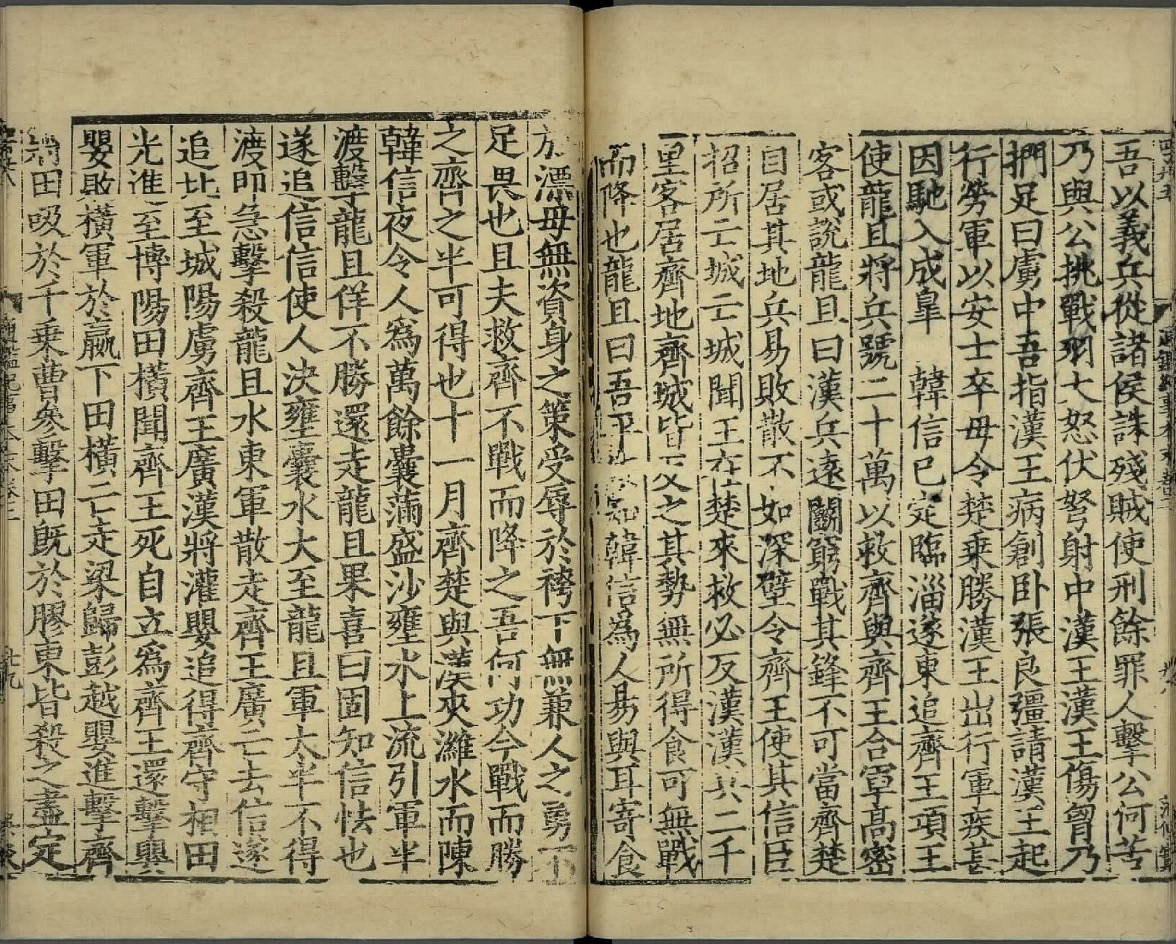 吾以義兵從諸侯誅殘賊使刑餘罪人擊公何苦
乃與公挑戰羽大怒伏弩射中漢王漢王傷胷乃
捫足曰虜中吾指漢王病創卧張良彊請漢王起
行勞軍以安士卒毋令楚乗勝漢王出行軍疾甚
因馳入成臯　韓信已定臨淄遂東追齊王項王
使龍且將兵號二十萬以救齊與齊王合軍髙密
客或說龍且曰漢兵逺鬬窮戰其鋒不可當齊楚
自居其地兵易敗散不如深壁令齊王使其信臣
招所亡城亡城聞王在楚來救必反漢漢兵二千
里客居齊地齊城皆反之其勢無所得食可無戰
而降也龍且曰吾平知韓信為人易與耳寄食
於漂母無資身之策受辱於袴下無兼人之勇不
足畏也且夫救齊不戰而降之吾何功今戰而勝
之齊之半可得也十一月齊楚與漢夾濰水而陳
韓信夜令人為萬餘囊滿盛沙壅水上流引軍半
渡擊龍且佯不勝還走龍且果喜曰固知信怯也
遂追信信使人決壅囊水大至龍且軍太半不得
渡即急擊殺龍且水東軍散走齊王廣亡去信遂
追北至城陽虜齊王廣漢將灌嬰追得齊守相田
光進至博陽田橫聞齊王死自立為齊王還擊嬰
嬰敗橫軍於嬴下田橫亡走梁歸彭越嬰進擊齊
將田吸於千乗曹參擊田旣於膠東皆殺之盡定